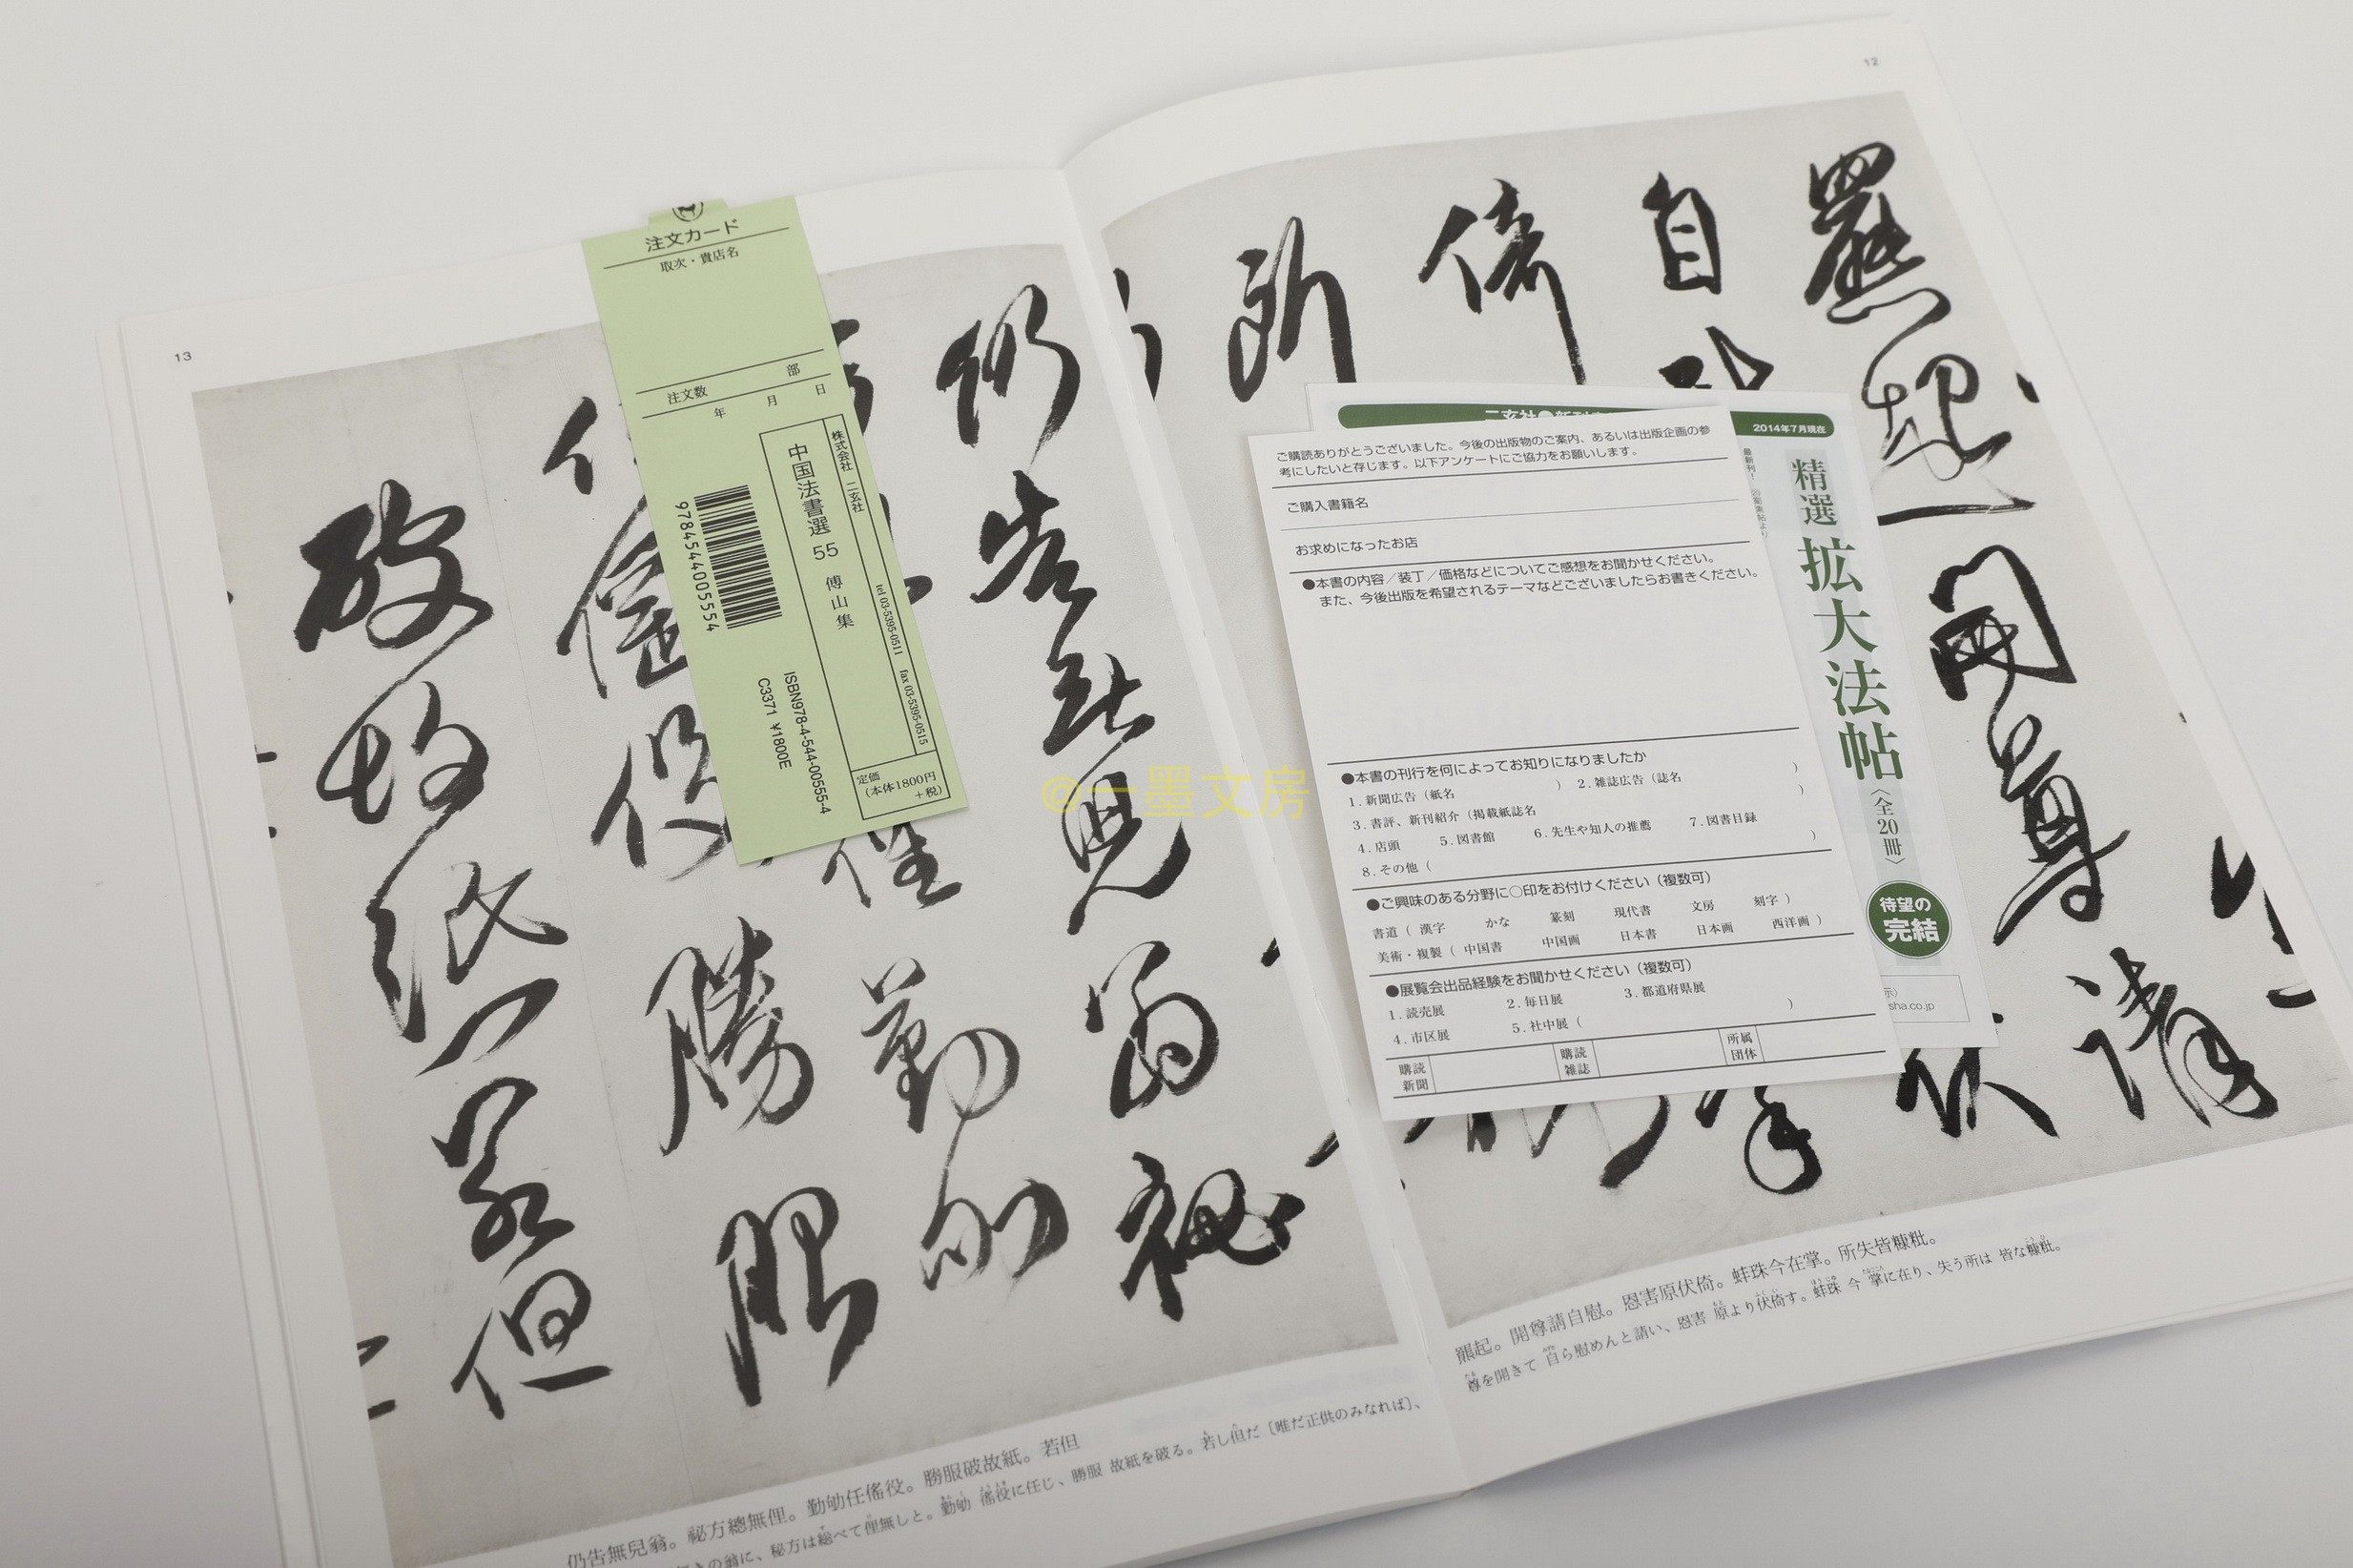 12
羆起
開尊請
自
伏
倚
掌
所
仍告無兒翁秘
俚勤劬
役勝服
破故紙若但
13
羆起。開尊請自慰。恩害原伏倚。蚌珠今在掌。所失皆糠粃。
尊を開きて 自ら慰めんと請い、恩害 原より伏倚す。蚌珠 今 掌に在り、失う所は 皆な糠粃。
仍告無兒翁。祕方總無俚。勤劬任傜役。勝服破故紙。若但
きの翁に、秘方は総べて俚無しと。勤劬 傜役に任じ、勝服 故紙を破る。若し但だ〔唯だ正供のみなれば〕、
注文カード
取次・貴店名
注文数 部
年 月 日
株式会社 二玄社
tel 03-5395-0511 fax 03-5395-0515
中国法書選 55 傅山集
定価
(本体1800円
+税)
9784544005554
ISBN978-4-544-00555-4
C3371 ¥1800E
2014年7月現在
精選拡大法帖〈全20冊〉
待望の
完結
sha.co.jp
ご購読ありがとうございました。今後の出版物のご案内、あるいは出版企画の参
考にしたいと存じます。以下アンケートにご協力をお願いします。
ご購入書籍名
お求めになったお店
●本書の内容/装丁/価格などについてご感想をお聞かせください。
また、今後出版を希望されるテーマなどございましたらお書きください。
●本書の刊行を何によってお知りになりましたか
1.新聞広告(紙名 ) 2.雑誌広告(誌名 )
3.書評、新刊紹介(掲載紙誌名 )
4.店頭 5.図書館 6.先生や知人の推薦 7.図書目録
8.その他( )
●ご興味のある分野に○印をお付けください(複数可)
書道( 漢字 かな 篆刻 現代書 文房 刻字 )
美術・複製( 中国書 中国画 日本書 日本画 西洋画 )
●展覧会出品経験をお聞かせください(複数可)
1.読売展 2.毎日展 3.都道府県展
4.市区展 5.社中展( )
購読新聞 購読雑誌 所属団体
©一墨文房